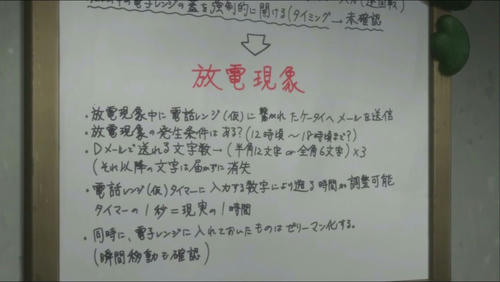 の電子レンジの蓋を強制的に開ける(タイミング→未確認
放電現象
・放電現象中に電話レンジ(仮)に繋がれたケータイへメールを送信
・放電現象の発生条件はある?(12時頃〜18時頃まで?)
・Dメールで送れる文字数→(半角12文字 or 全角6文字)×3
(それ以降の文字は届かずに消失
・電話レンジ(仮)タイマーに入力する数字により遡る時間が調整可能
タイマーの1秒=現実の1時間
・同時に、電子レンジに入れておいたものはゼリーマン化する。
(瞬間移動も確認)